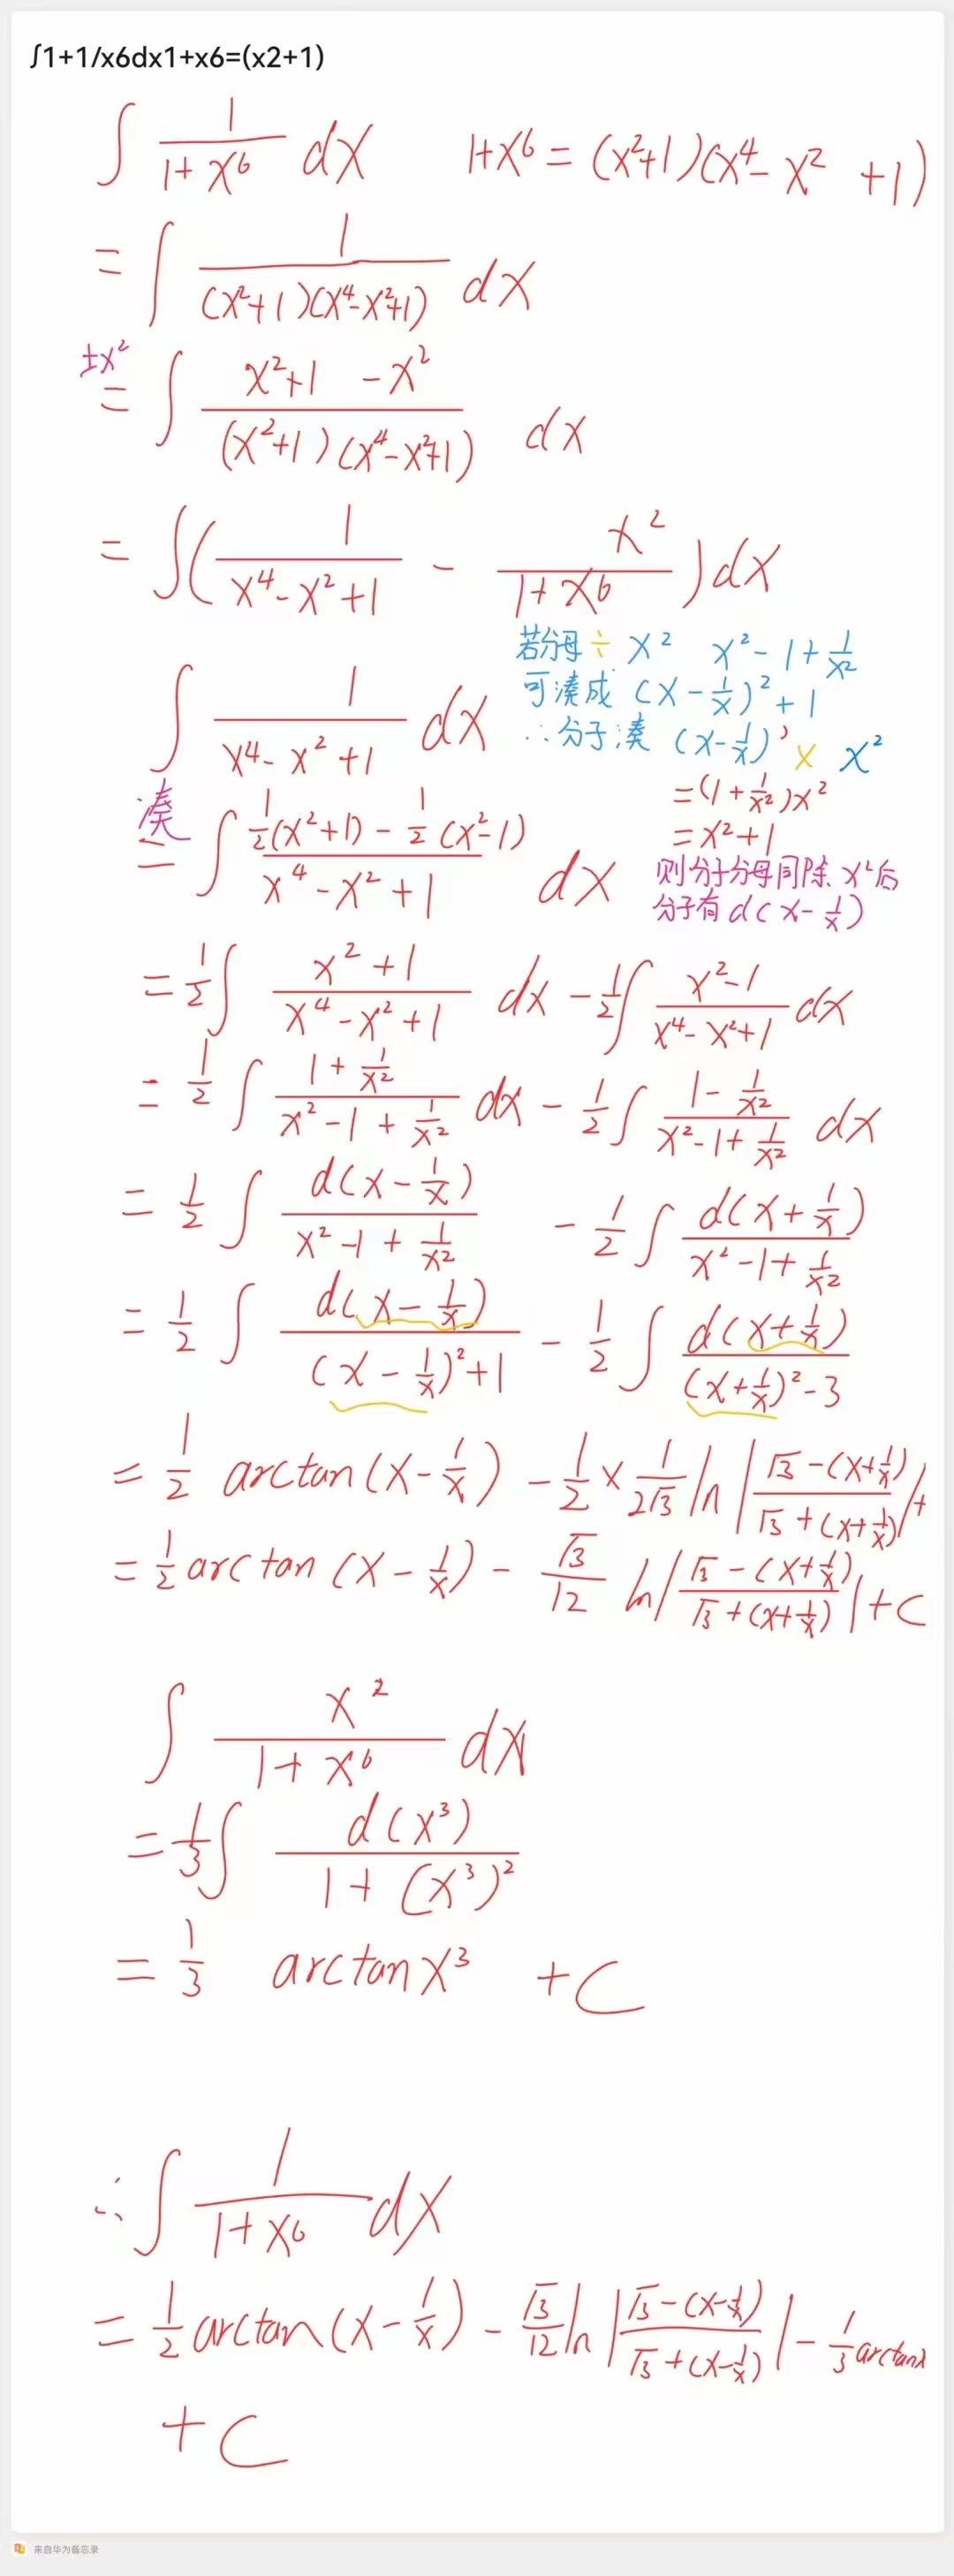 ∫1+1/x6dx1+x6=(x2+1)
∫ 1/(1+x⁶) dx    1+x⁶ = (x²+1)(x⁴-x²+1)
= ∫ 1/((x²+1)(x⁴-x²+1)) dx
±x²
= ∫ (x²+1 -x²)/((x²+1)(x⁴-x²+1)) dx
= ∫( 1/(x⁴-x²+1) - x²/(1+x⁶) )dx
若分母÷x²    x²-1+1/x²
可凑成 (x-1/x)²+1
∴分子凑 (x-1/x)' × x²
=(1+1/x²)x²
=x²+1
则分子分母同除x²后
分子有d(x-1/x)
∫ 1/(x⁴-x²+1) dx
凑
= ∫ (1/2(x²+1) - 1/2(x²-1))/(x⁴-x²+1) dx
= 1/2 ∫ (x²+1)/(x⁴-x²+1) dx - 1/2 ∫ (x²-1)/(x⁴-x²+1) dx
= 1/2 ∫ (1+1/x²)/(x²-1+1/x²) dx - 1/2 ∫ (1-1/x²)/(x²-1+1/x²) dx
= 1/2 ∫ d(x-1/x)/(x²-1+1/x²) - 1/2 ∫ d(x+1/x)/(x²-1+1/x²)
= 1/2 ∫ d(x-1/x)/((x-1/x)²+1) - 1/2 ∫ d(x+1/x)/((x+1/x)²-3)
= 1/2 arctan(x-1/x) - 1/2 × 1/(2√3) ln|(√3-(x+1/x))/(√3+(x+1/x))|+
= 1/2 arctan(x-1/x) - √3/12 ln|(√3-(x+1/x))/(√3+(x+1/x))|+C
∫ x²/(1+x⁶) dx
= 1/3 ∫ d(x³)/(1+(x³)²)
= 1/3 arctanx³ +C
∴∫ 1/(1+x⁶) dx
= 1/2 arctan(x-1/x) - √3/12 ln|(√3-(x-1/x))/(√3+(x-1/x))| - 1/3 arctanx
+C
来自华为备忘录